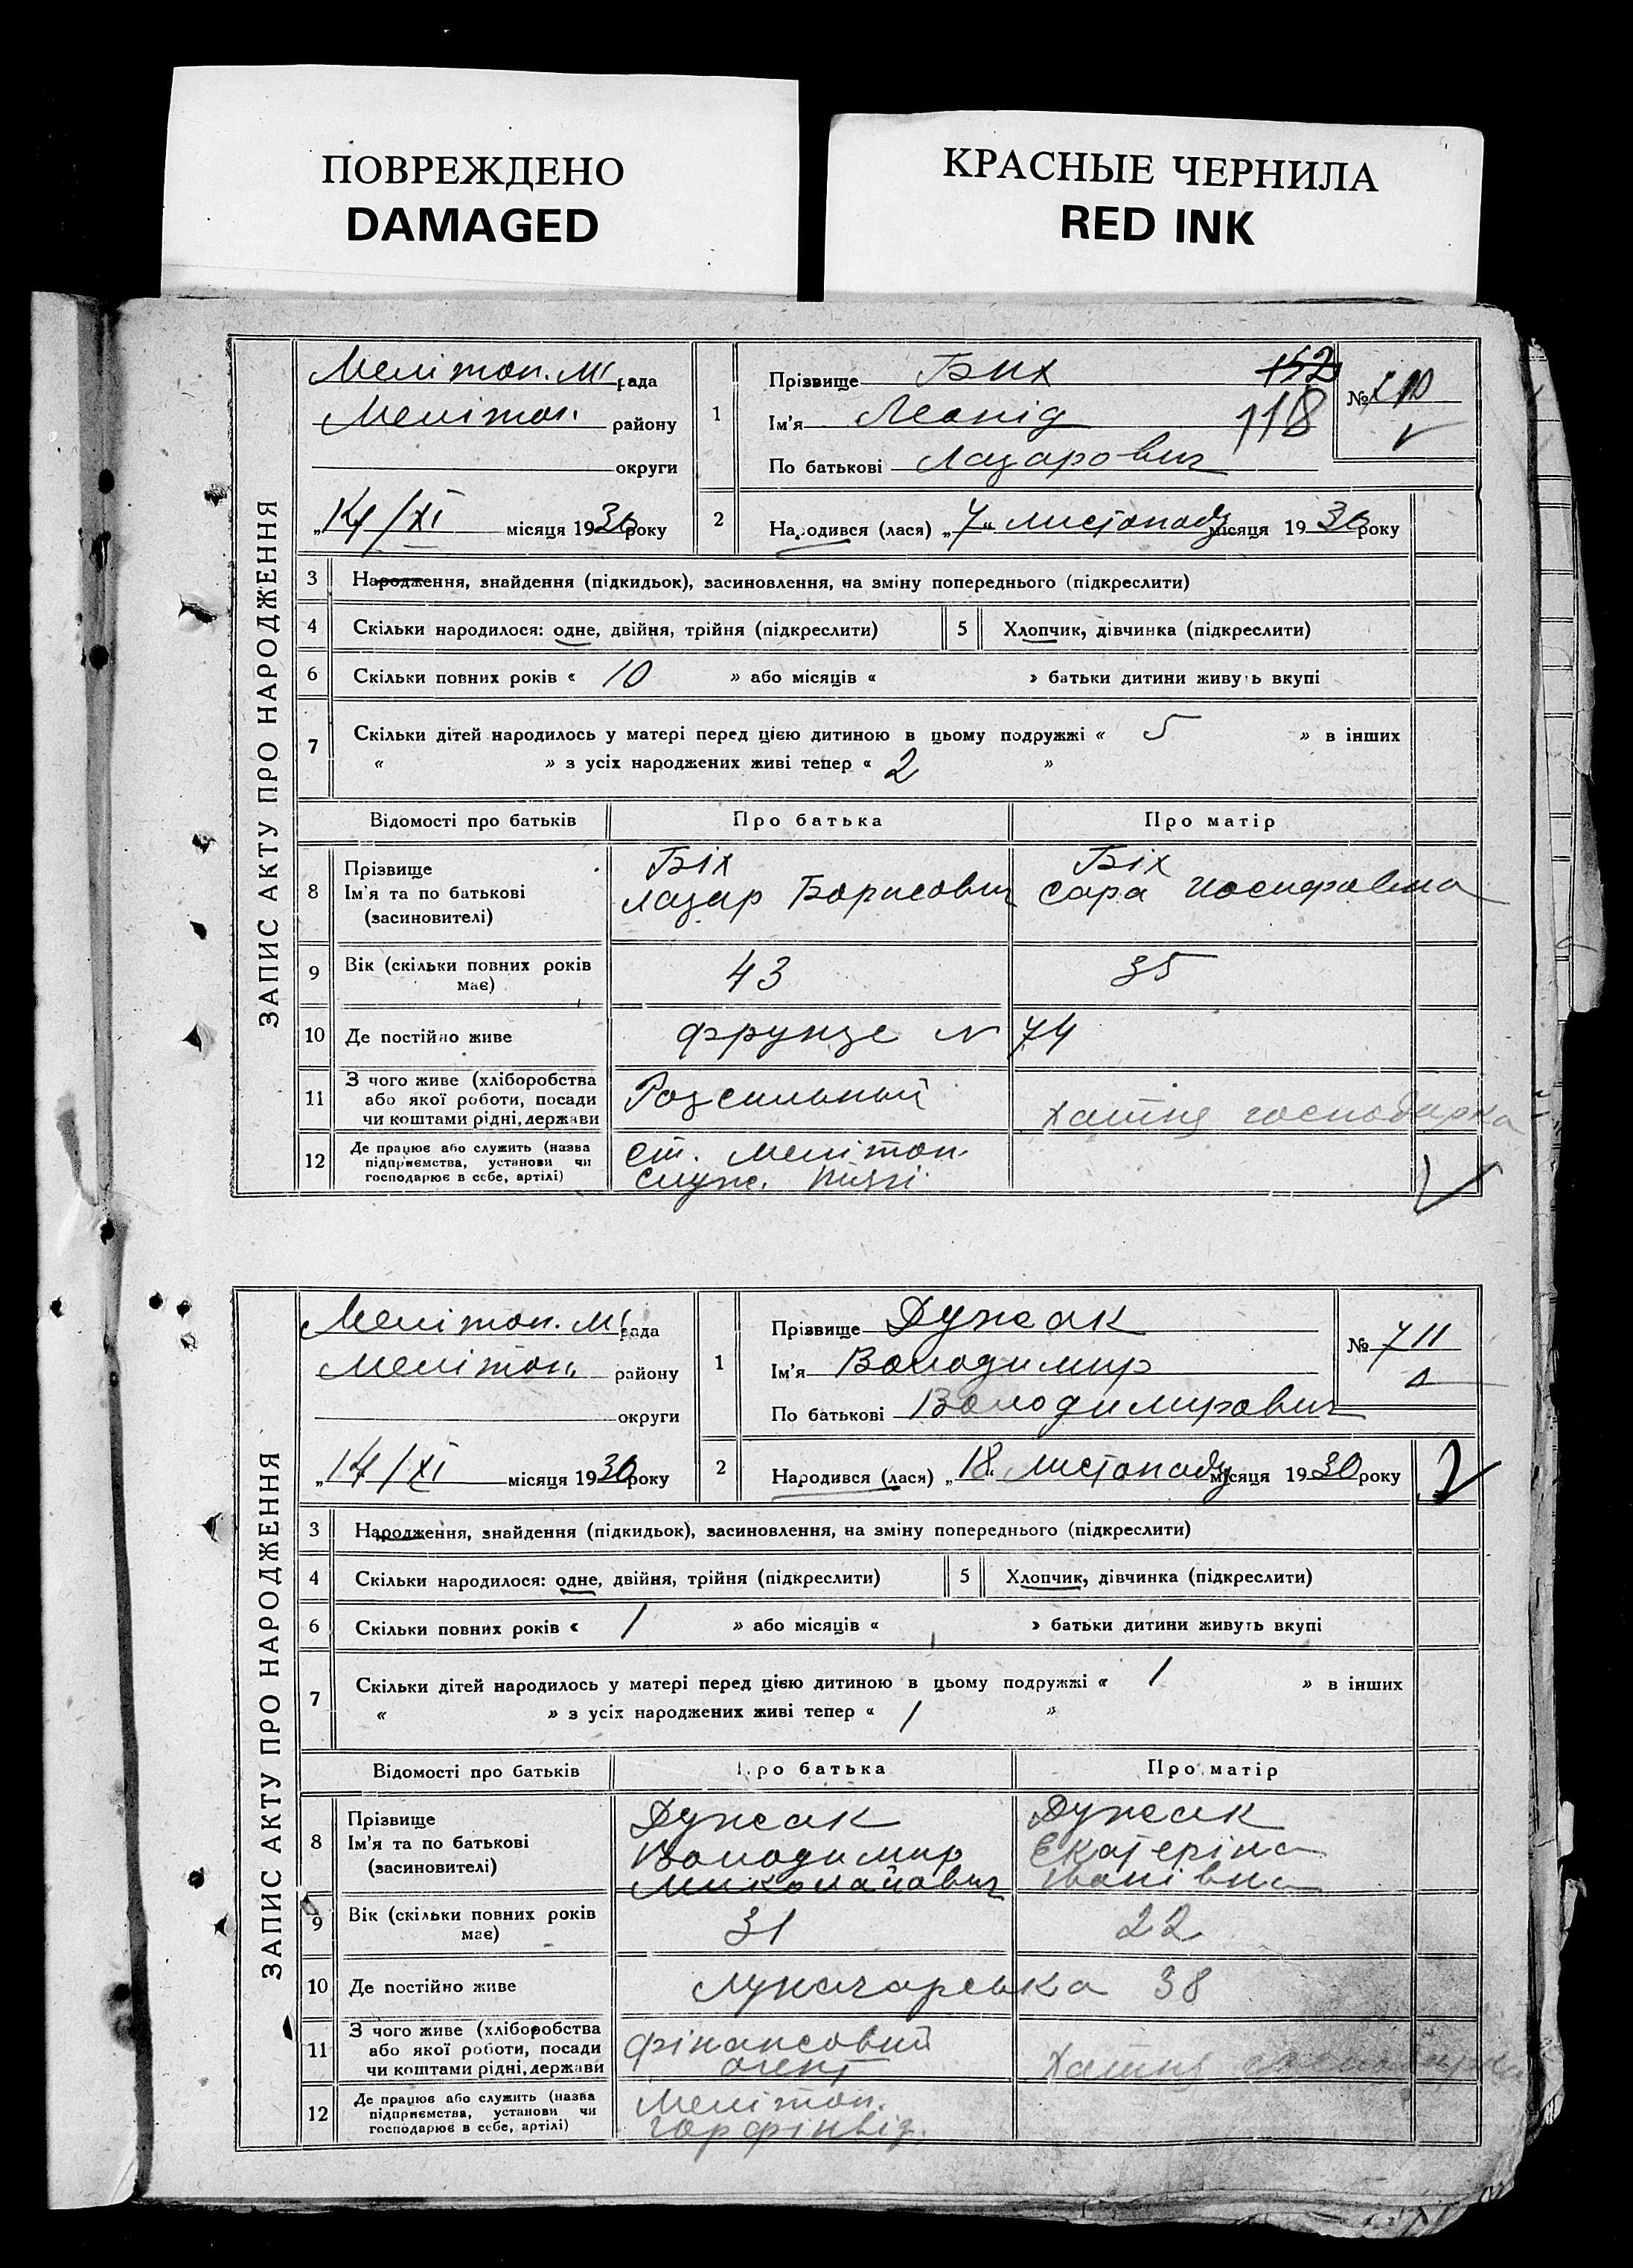 ПОВРЕЖДЕНО
DAMAGED
КРАСНЫЕ ЧЕРНИЛА
RED INK
ЗАПИС АКТУ ПРО НАРОДЖЕННЯ
Мелітоп. М рада
Мелітоп. району
округи
„14/XI місяця 1930 року
1
Прізвище Бих
152
Ім'я Леонід
118
По батькові Лазарович
№
2
Народився (лася) „7" листопаду місяця 1930 року
3 Народження, знайдення (підкидьок), засиновлення, на зміну попереднього (підкреслити)
4 Скільки народилося: одне, двійня, трійня (підкреслити) 5 Хлопчик, дівчинка (підкреслити)
6 Скільки повних років « 10 » або місяців « » батьки дитини живуть вкупі
7 Скільки дітей народилось у матері перед цією дитиною в цьому подружжі « 5 » в інших
« » з усіх народжених живі тепер « 2 »
Відомості про батьків Про батька Про матір
8 Прізвище Ім'я та по батькові (засновителі)
Біх Лазар Борисович
Біх Сара Иосифовна
9 Вік (скільки повних років має) 43 35
10 Де постійно живе Фрунзе N 74
11 З чого живе (хліборобства або якої роботи, посади чи коштами рідні, держави
Розсильный
Хатня господарка
12 Де працює або служить (назва підприємства, установи чи господарює в себе, артілі)
ст. Мелітоп.
служ.
ЗАПИС АКТУ ПРО НАРОДЖЕННЯ
Мелітоп. М рада
Мелітоп. району
округи
„14/XI місяця 1930 року
1
Прізвище Дужак
Ім'я Володимир
По батькові Володимирович
№ 711
2
Народився (лася) „18" листопаду місяця 1930 року
3 Народження, знайдення (підкидьок), засиновлення, на зміну попереднього (підкреслити)
4 Скільки народилося: одне, двійня, трійня (підкреслити) 5 Хлопчик, дівчинка (підкреслити)
6 Скільки повних років « 1 » або місяців « » батьки дитини живуть вкупі
7 Скільки дітей народилось у матері перед цією дитиною в цьому подружжі « 1 » в інших
« » з усіх народжених живі тепер « 1 »
Відомості про батьків Про батька Про матір
8 Прізвище Ім'я та по батькові (засиновителі)
Дужак Володимир Миколайович
Дужак Екатеріна Іванівна
9 Вік (скільки повних років має) 31 22
10 Де постійно живе Луначарська 38
11 З чого живе (хліборобства або якої роботи, посади чи коштами рідні, держави
Фінансовий агент
Хатня господарка
12 Де працює або служить (назва підприємства, установи чи господарює в себе, артілі)
Мелітоп.
горфінвід.